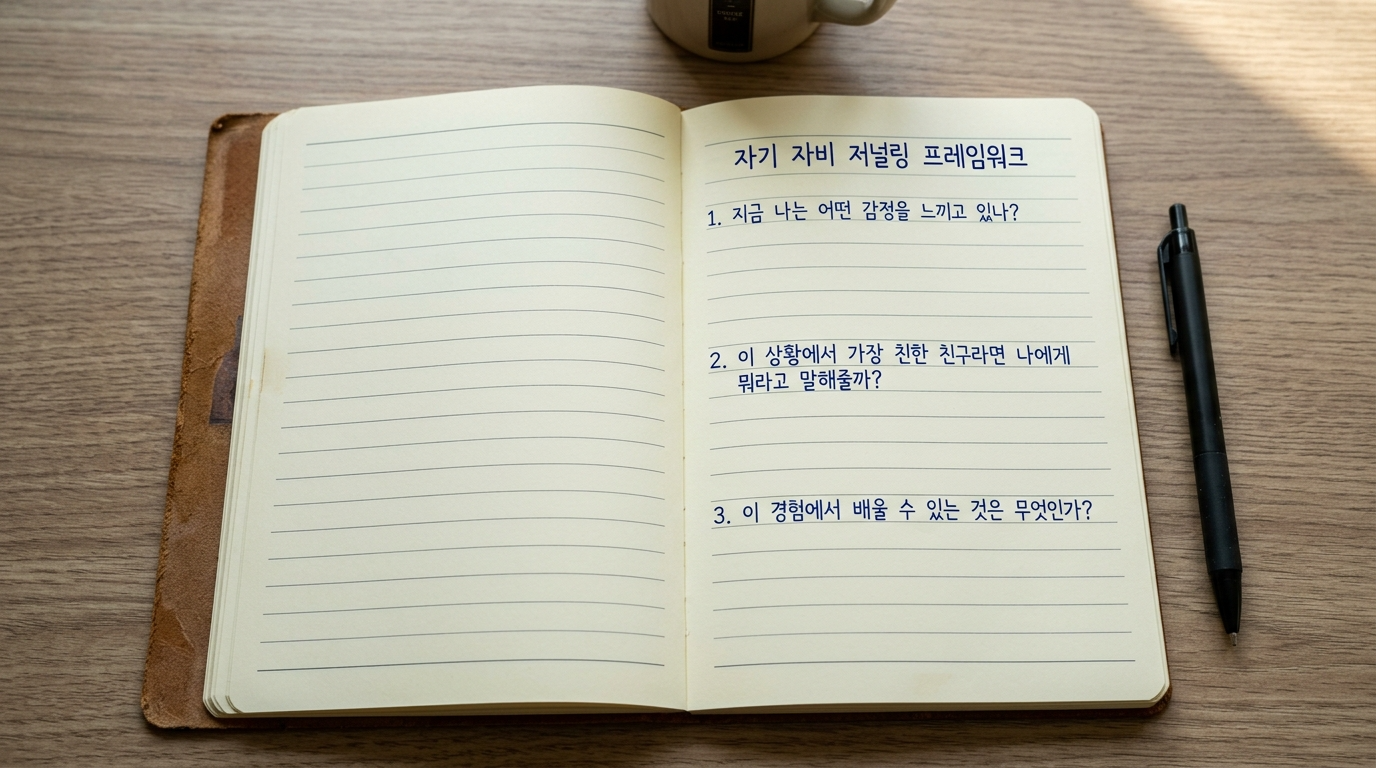 자기 자비 저널링 프레임워크
1. 지금 나는 어떤 감정을 느끼고 있나?
2. 이 상황에서 가장 친한 친구라면 나에게
뭐라고 말해줄까?
3. 이 경험에서 배울 수 있는 것은 무엇인가?